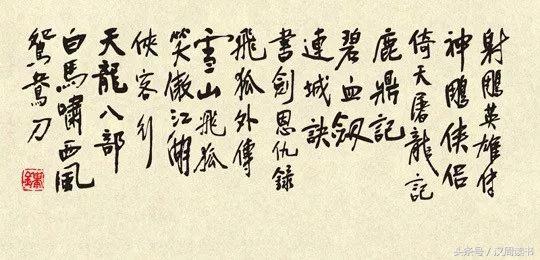 射鵰英雄传
神鵰侠侶
倚天屠龍記
鹿鼎記
碧血劔
連城訣
書劍恩仇錄
飛狐外傳
雪山飛狐
笑傲江湖
俠客行
天龍八部
白馬嘯西風
鴛鴦刀
头条号 / 汉周读书